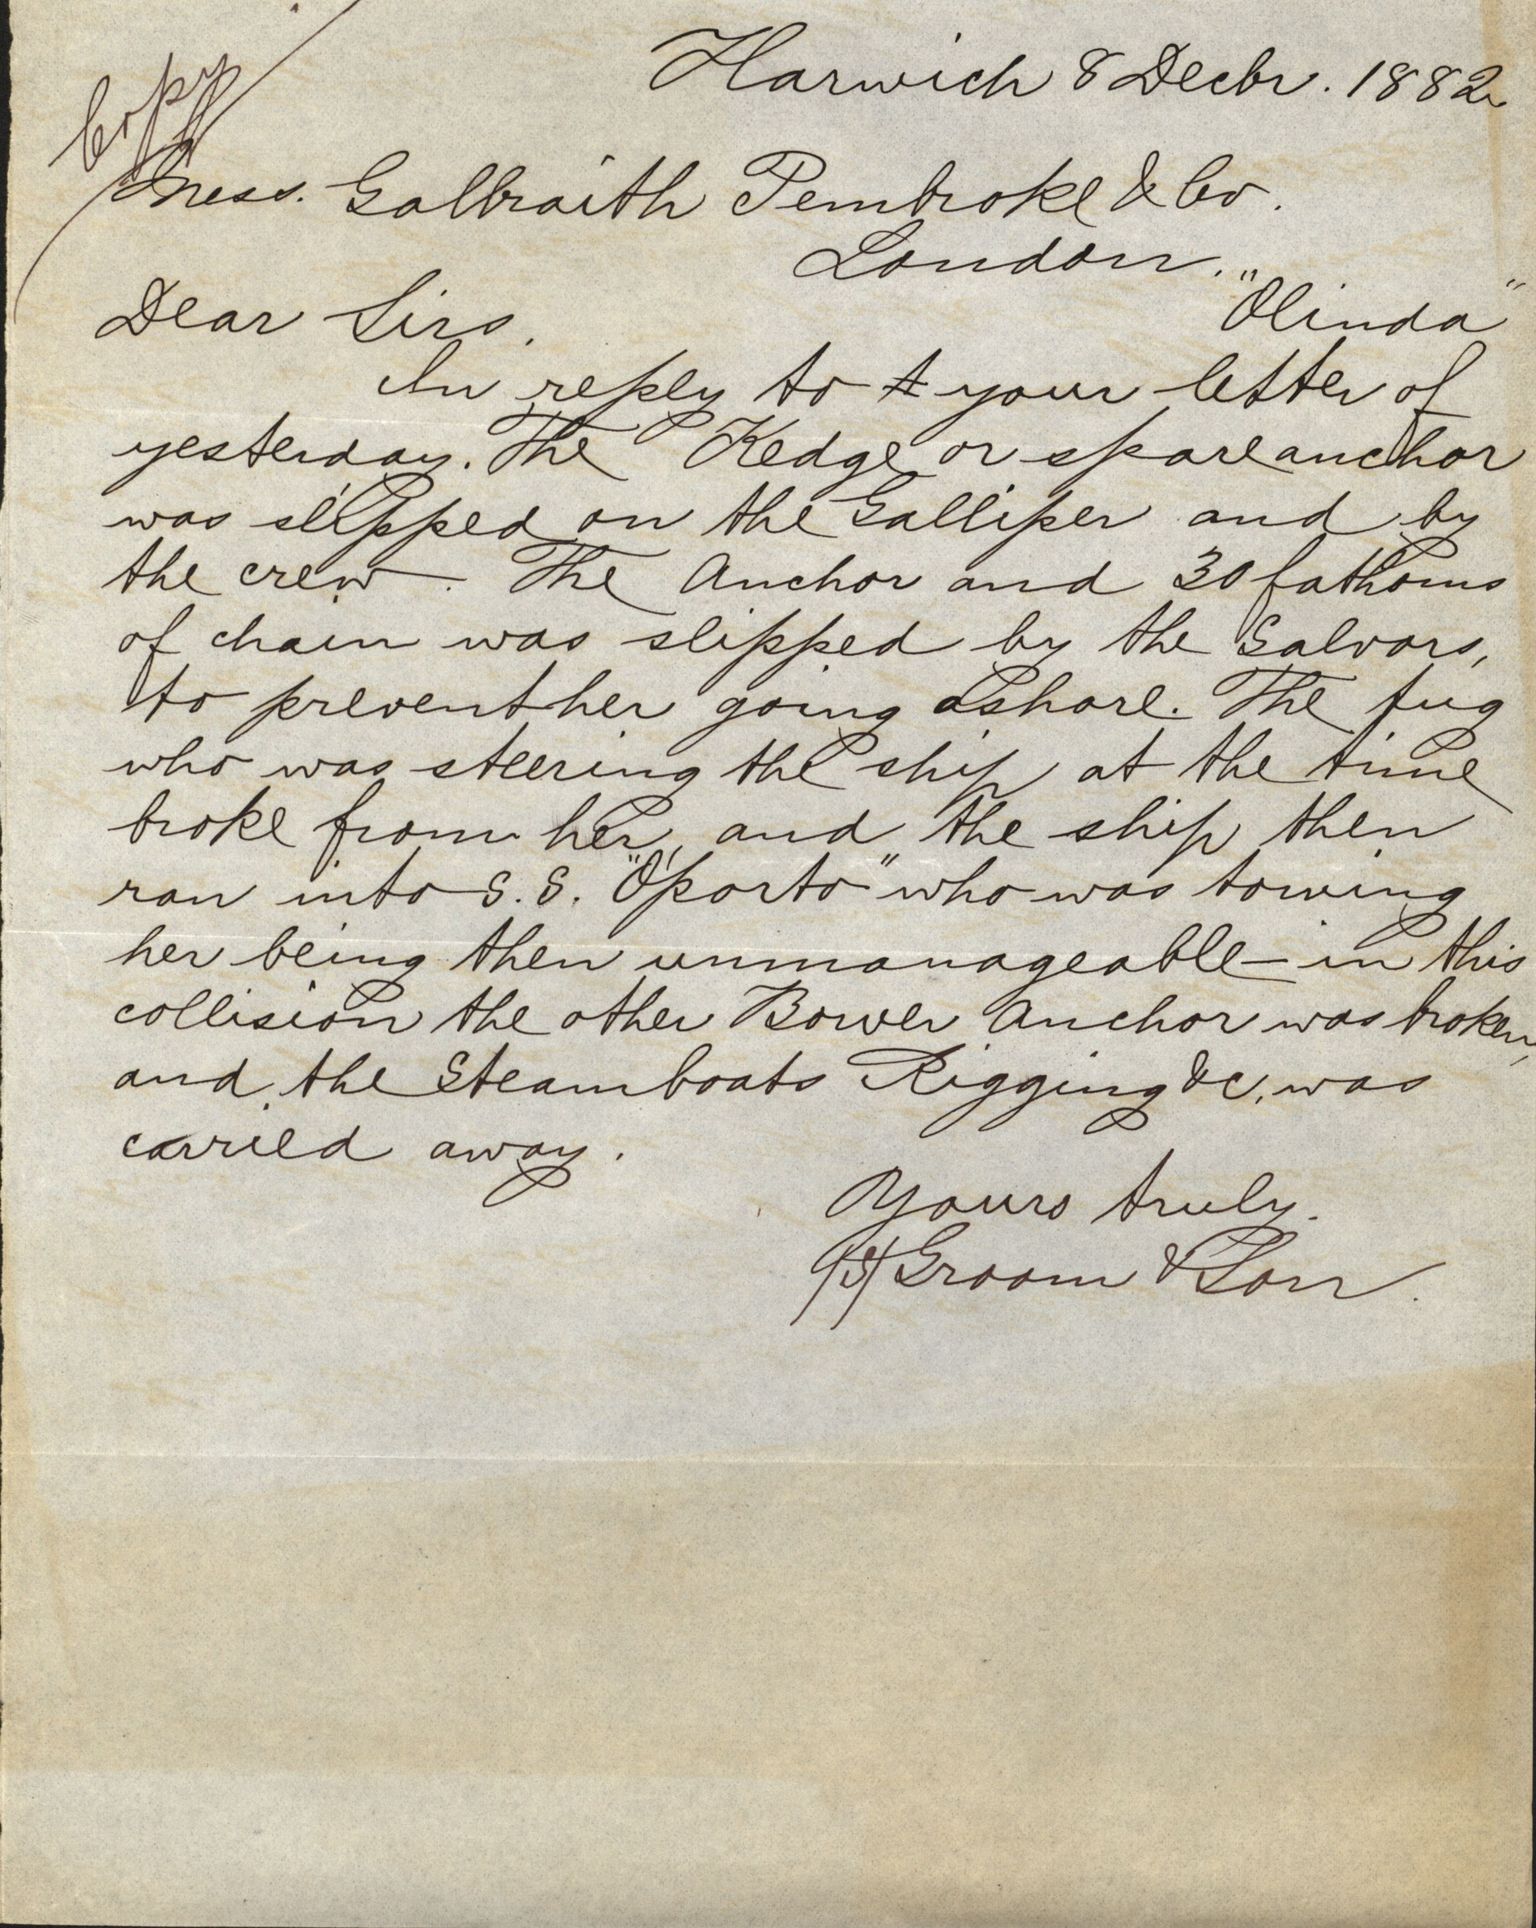 Copy
Harwich 8 Decbr. 1882
Mess. Galbraith Pembroke & Co.
London.
Dear Sirs,
"Olinda"
In reply to t your letter of
yesterday. The Kedge or spare anchor
was slipped on the Galliper and by
the crew. The Anchor and 30 fathoms
of chain was slipped by the Salvors,
to prevent her going ashore. The tug
who was steering the ship at the time
broke from her, and the ship then
ran into S.S. "O'porto" who was towing
her being then unmanageable – in this
collision the other Bower Anchor was broken,
and the Steamboats Rigging &c, was
carried away.
Yours truly.
(S) Groom & Son.